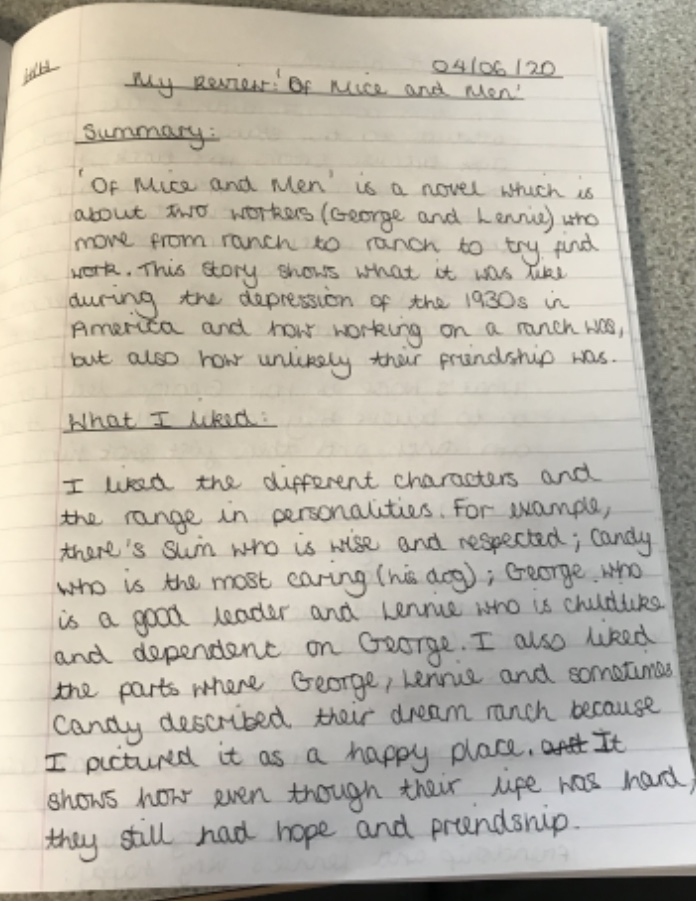 H/W
04/06/20
My Review: 'Of Mice and Men'
Summary:
'Of Mice and Men' is a novel which is
about two workers (George and Lennie) who
move from ranch to ranch to try find
work. This story shows what it was like
during the depression of the 1930s in
America and how working on a ranch was,
but also how unlikely their friendship was.
What I liked:
I liked the different characters and
the range in personalities. For example,
there's Slim who is wise and respected; Candy
who is the most caring (his dog); George who
is a good leader and Lennie who is childlike
and dependent on George. I also liked
the parts where George, Lennie and sometimes
Candy described their dream ranch because
I pictured it as a happy place. It
shows how even though their life was hard,
they still had hope and friendship.